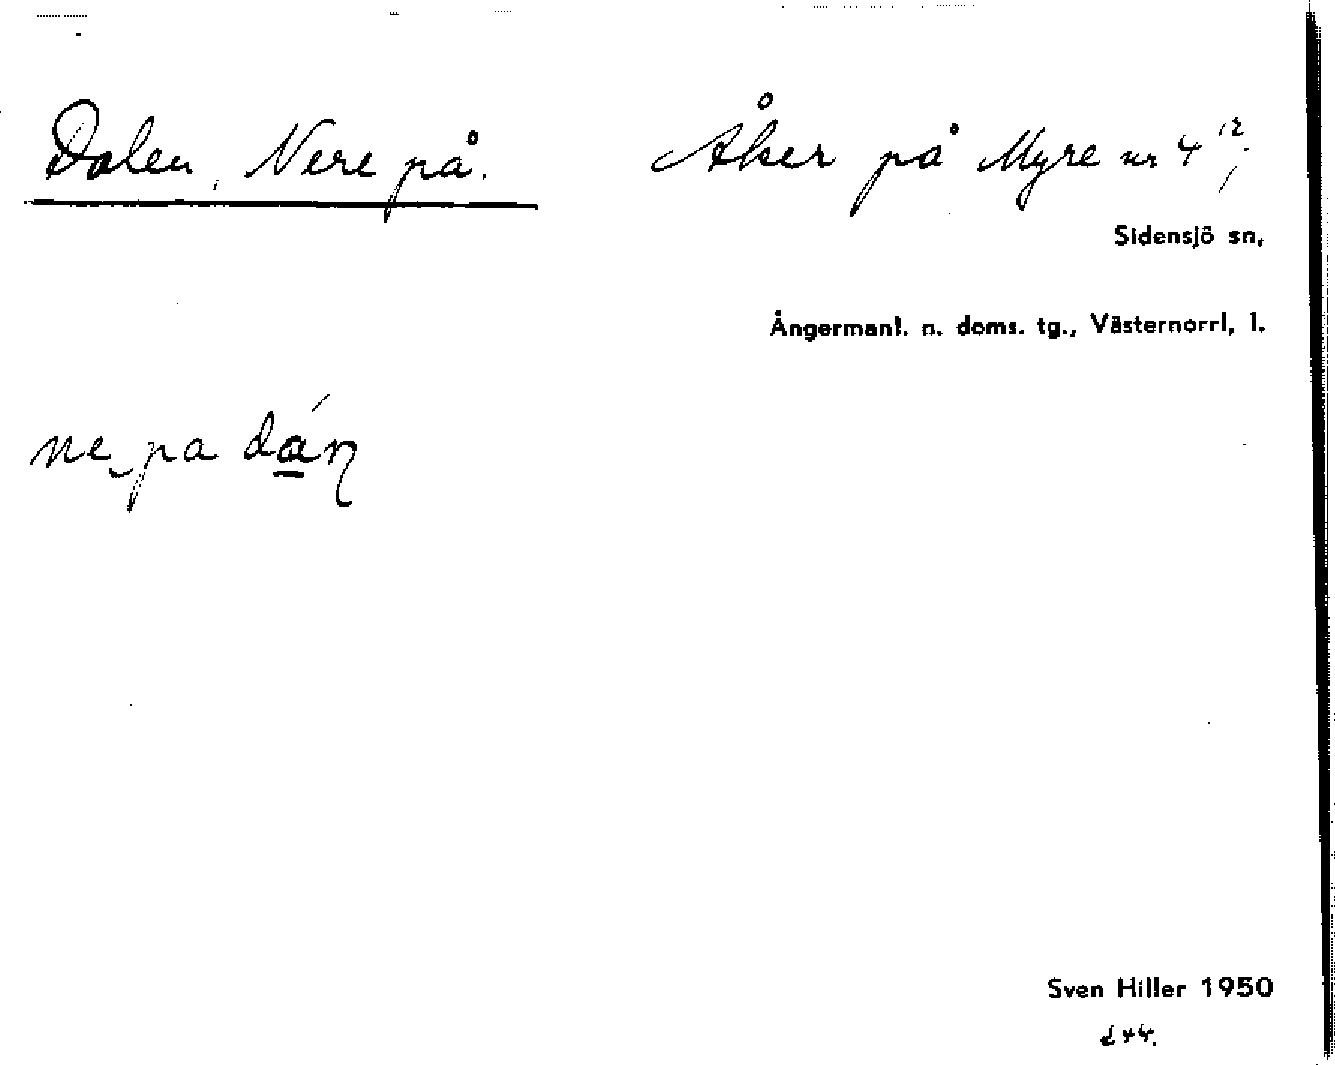 Dalen, Nere på.
Åker på Myre nr 4¹²,
Sidensjö sn,
Ångermanl. n. doms. tg., Västernorrl. l.
ne pa dán
Sven Hiller 1950